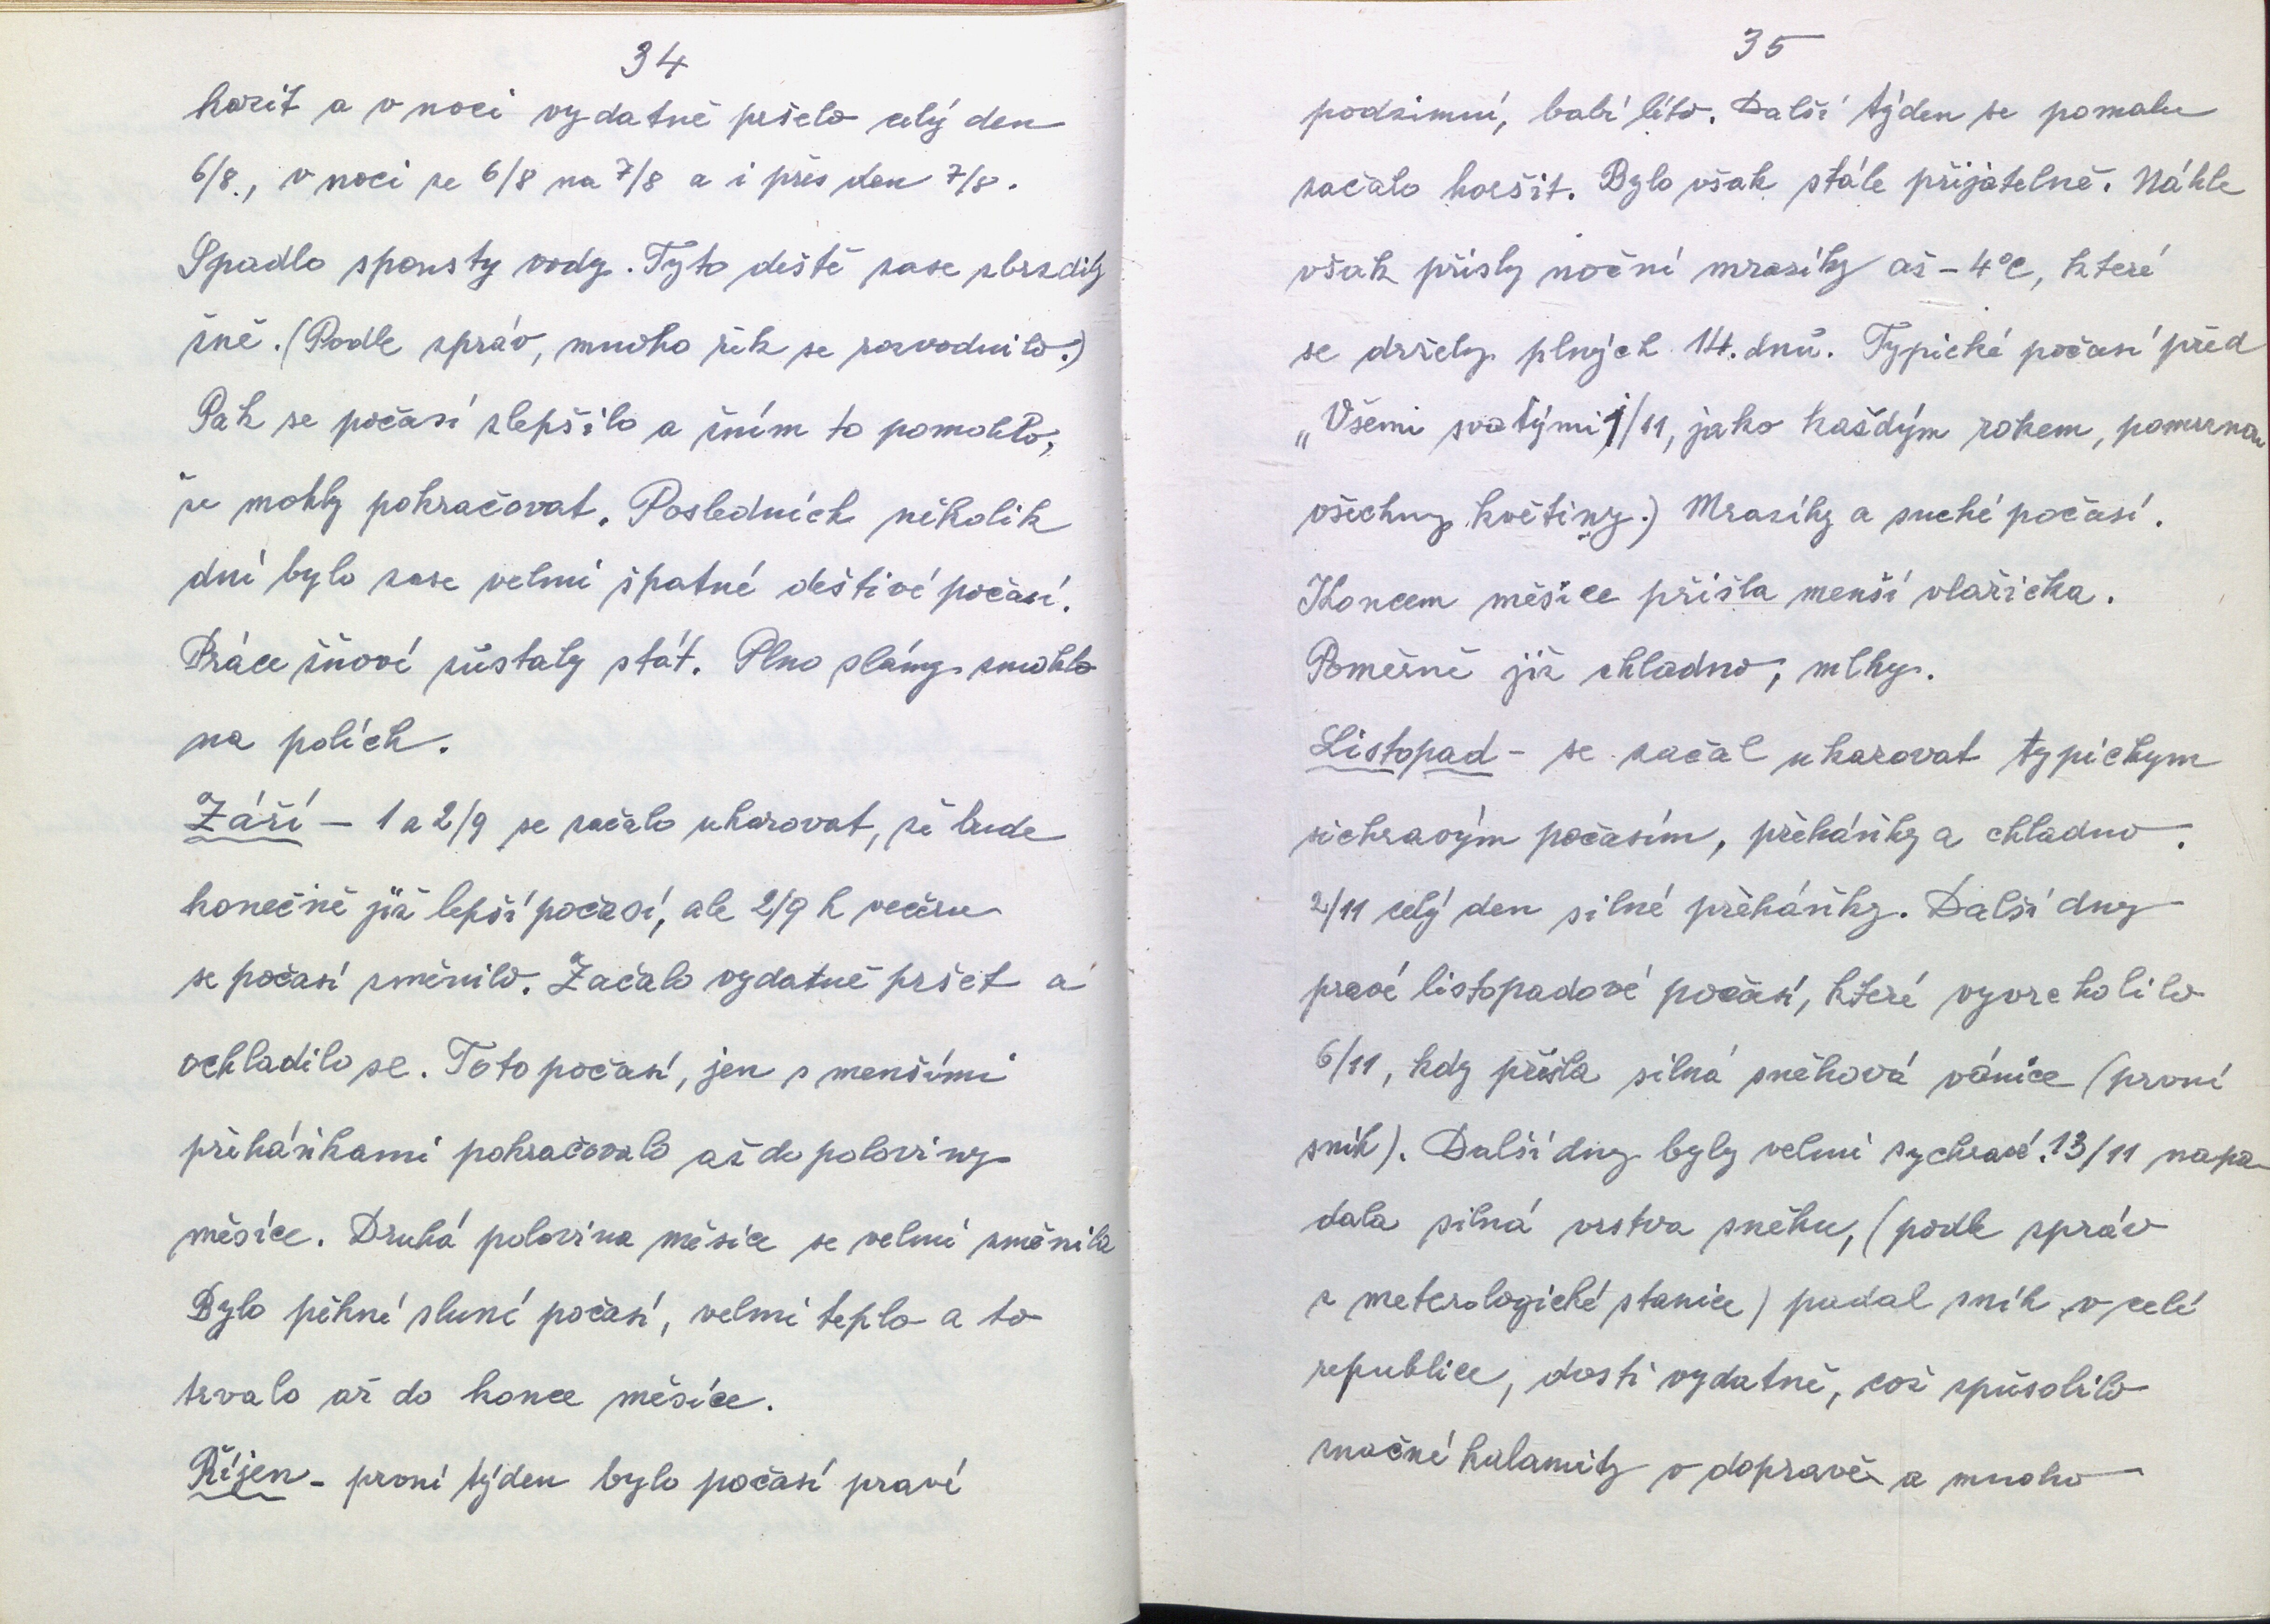 34
kazit a v noci vydatně pršelo celý den
6/8., v noci ze 6/8 na 7/8 a i přes den 7/8.
Spadlo spousty vody. Tyto deště zase zbrzdily
žně. (Podle zpráv, mnoho řek se rozvodnilo.)
Pak se počasí zlepšilo a žním to pomohlo,
že mohly pokračovat. Posledních několik
dní bylo zase velmi špatné deštivé počasí.
Práce žňové zůstaly stát. Plno slámy zmoklo
na polích.
Září – 1 a 2/9 se začalo ukazovat, že bude
konečně již lepší počasí, ale 2/9 k večeru
se počasí změnilo. Začalo vydatně pršet a
ochladilo se. Toto počasí, jen s menšími
přeháňkami pokračovalo až do poloviny
měsíce. Druhá polovina měsíce se velmi změnila
Bylo pěkné sluné počasí, velmi teplo a to
trvalo až do konce měsíce.
Říjen – první týden bylo počasí pravé
35
podzimní, babí léto. Další týden se pomalu
začalo horšit. Bylo však stále přijatelně. Náhle
však přisly noční mrazíky až – 4°C, které
se držely plných 14. dnů. Typické počasí před
„Všemi svatými 1/11, jako každým rokem, pomrznou
všechny květiny.) Mrazíky a suché počasí.
Koncem měsíce přišla menší vlažička.
Poměrně již chladno, mlhy.
Listopad – se začal ukazovat typickym
sichravým počasím, přeháňky a chladno.
2/11 celý den silné přeháňky. Další dny
pravé listopadové počasí, které vyvrcholilo
6/11, kdy přišla silná sněhová vánice (první
sníh). Další dny byly velmi sychravé. 13/11 napa-
dala silná vrstva sněhu, (podle zpráv
z meterologické stanice) padal sníh v celé
republice, dosti vydatně, což způsobilo
značné kalamity v dopravě a mnoho